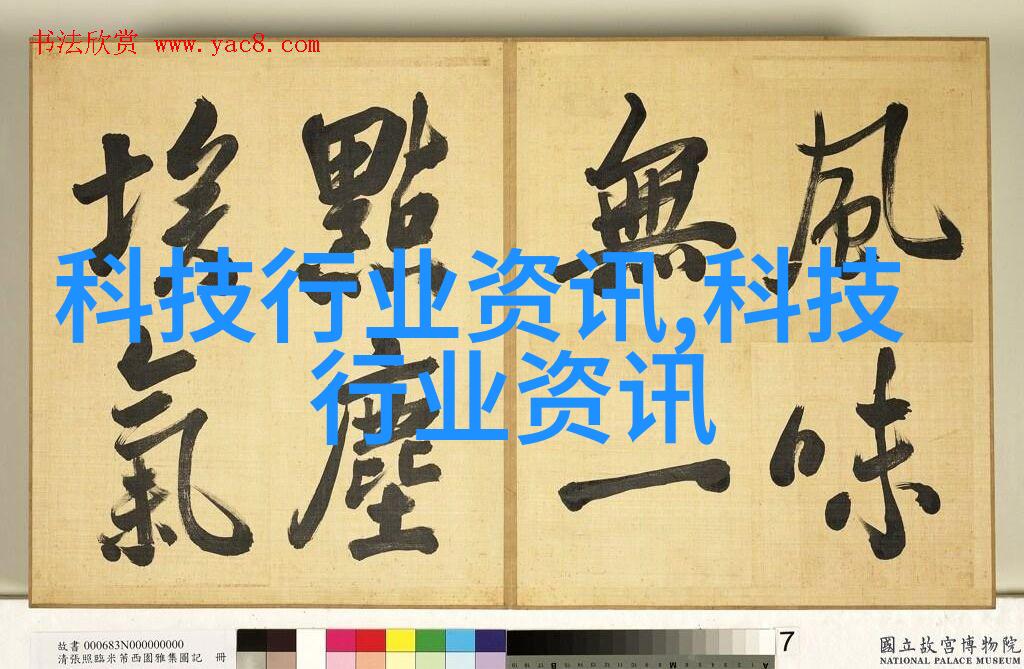 书法欣赏 www.yac8.com
風味
無一
點塵
埃氣
科技行业资讯,科技
行业资讯
故書 000683N000000000
清張照臨米芾西園雅集圖記 冊
7
國立故宮博物院
NATIONAL PALACE MUSEUM